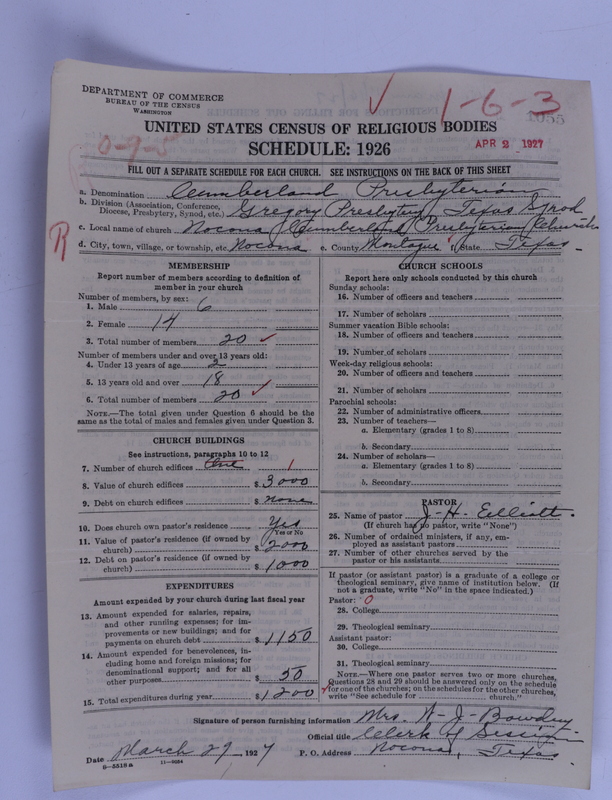 DEPARTMENT OF COMMERCE
BUREAU OF THE CENSUS
WASHINGTON
1-6-3
0-9-5
UNITED STATES CENSUS OF RELIGIOUS BODIES
SCHEDULE: 1926
APR 2 1927
FILL OUT A SEPARATE SCHEDULE FOR EACH CHURCH. SEE INSTRUCTIONS ON THE BACK OF THIS SHEET
a. Denomination Cumberland Presbyterian
b. Division (Association, Conference, Diocese, Presbytery, Synod, etc.) Gregory Presbytery Texas Synod
c. Local name of church Nocona Cumberland Presbyterian Church
d. City, town, village, or township, etc. Nocona e. County Montague f. State Texas
R
MEMBERSHIP
Report number of members according to definition of
member in your church
Number of members, by sex:
1. Male 6
2. Female 14
3. Total number of members 20
Number of members under and over 13 years old:
4. Under 13 years of age 2
5. 13 years old and over 18
6. Total number of members 20
NOTE.—The total given under Question 6 should be the
same as the total of males and females given under Question 3.
CHURCH BUILDINGS
See instructions, paragraphs 10 to 12
7. Number of church edifices One 1
8. Value of church edifices $3000
9. Debt on church edifices $none
10. Does church own pastor's residence Yes
(Yes or No)
11. Value of pastor's residence (if owned by
church) $2000
12. Debt on pastor's residence (if owned by
church) $1000
EXPENDITURES
Amount expended by your church during last fiscal year
13. Amount expended for salaries, repairs,
and other running expenses; for im-
provements or new buildings; and for
payments on church debt $1150
14. Amount expended for benevolences, in-
cluding home and foreign missions; for
denominational support; and for all
other purposes $50
15. Total expenditures during year $1200
CHURCH SCHOOLS
Report here only schools conducted by this church
Sunday schools:
16. Number of officers and teachers
17. Number of scholars
Summer vacation Bible schools:
18. Number of officers and teachers
19. Number of scholars
Week-day religious schools:
20. Number of officers and teachers
21. Number of scholars
Parochial schools:
22. Number of administrative officers
23. Number of teachers—
a. Elementary (grades 1 to 8)
b. Secondary
24. Number of scholars—
a. Elementary (grades 1 to 8)
b. Secondary
PASTOR
25. Name of pastor J. H. Elliott.
(If church has no pastor, write "None")
26. Number of ordained ministers, if any, em-
ployed as assistant pastors
27. Number of other churches served by the
pastor or his assistants
If pastor (or assistant pastor) is a graduate of a college or
theological seminary, give name of institution below. (If
not a graduate, write "No" in the space indicated.)
Pastor: 0
28. College
29. Theological seminary
Assistant pastor:
30. College
31. Theological seminary
NOTE.—Where one pastor serves two or more churches,
Questions 28 and 29 should be answered only on the schedule
for one of the churches; on the schedules for the other churches,
write "See schedule for church."
Signature of person furnishing information Mrs. A. J.
Official title Clerk of Session
Date March 29, 1927 P. O. Address Nocona, Texas
8—5518a 11—9084